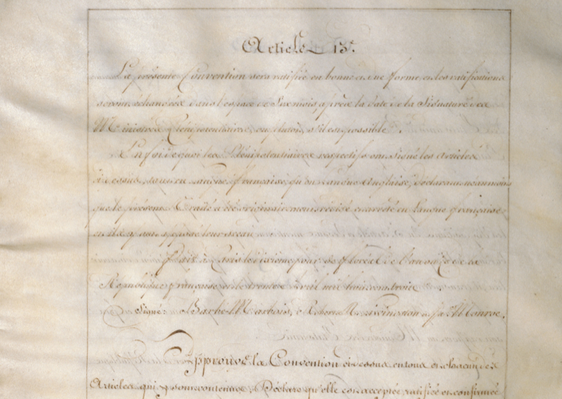 Article 13e.
La présente Convention sera ratifiée en bonne et due forme et les ratifications
seront échangées dans l'espace de Six mois après la date de la Signature des
Ministres Plénipotentiaires, ou plutôt, s'il est possible.
En foi de quoi les Plénipotentiaires respectifs ont signé les Articles
ci-dessus, tant en langue française qu'en langue Anglaise, déclarant néanmoins
que le présent Traité a été originairement rédigé et arrêté en langue française
et ils y ont apposé leur sceau
fait à Paris le dixième jour de floréal de l'an onze de la
République française et le trente Avril mil huit cent trois
Signé Barbé Marbois, Robert R. Livingston et Jas. Monroe.
Approuve la Convention ci dessus en tous et chacun des
Articles qui y sont contenus; Déclare qu'elle est acceptée, ratifiée et confirmée